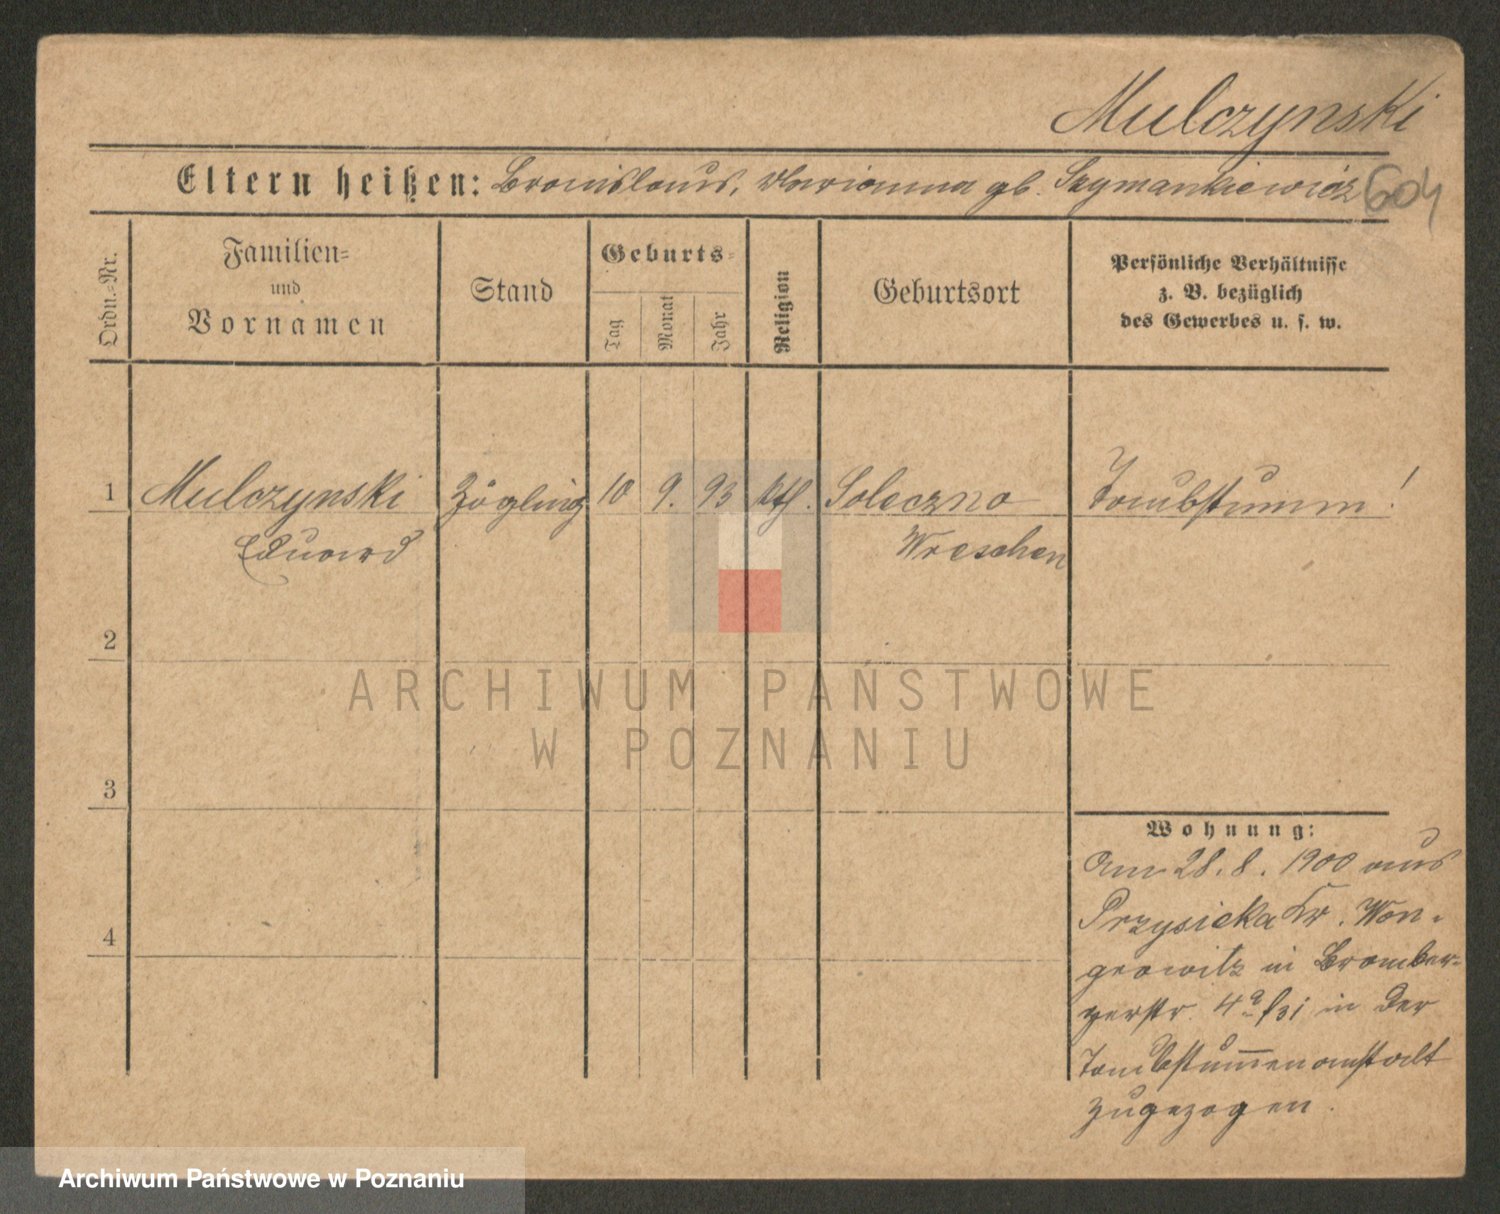 Mulczynski
Eltern heißen: Bronislaus, Marianna gb. Szymankiewicz 604
Ordn.=Nr.
Familien=
und
Vornamen
Stand
Geburts=
Tag
Monat
Jahr
Religion
Geburtsort
Persönliche Verhältnisse
z. B. bezüglich
des Gewerbes u. s. w.
1 Mulczynski Zögling 10 9. 93 kth. Soleczno Taubstumm!
Eduard Wreschen
2
3
4
Wohnung:
Am 28.8.1900 aus
Przysieka Kr. Won-
growitz in Bromber-
gerstr. 4a bei in der
Taubstummenanstalt
zugezogen.
ARCHIWUM PAŃSTWOWE
W POZNANIU
Archiwum Państwowe w Poznaniu